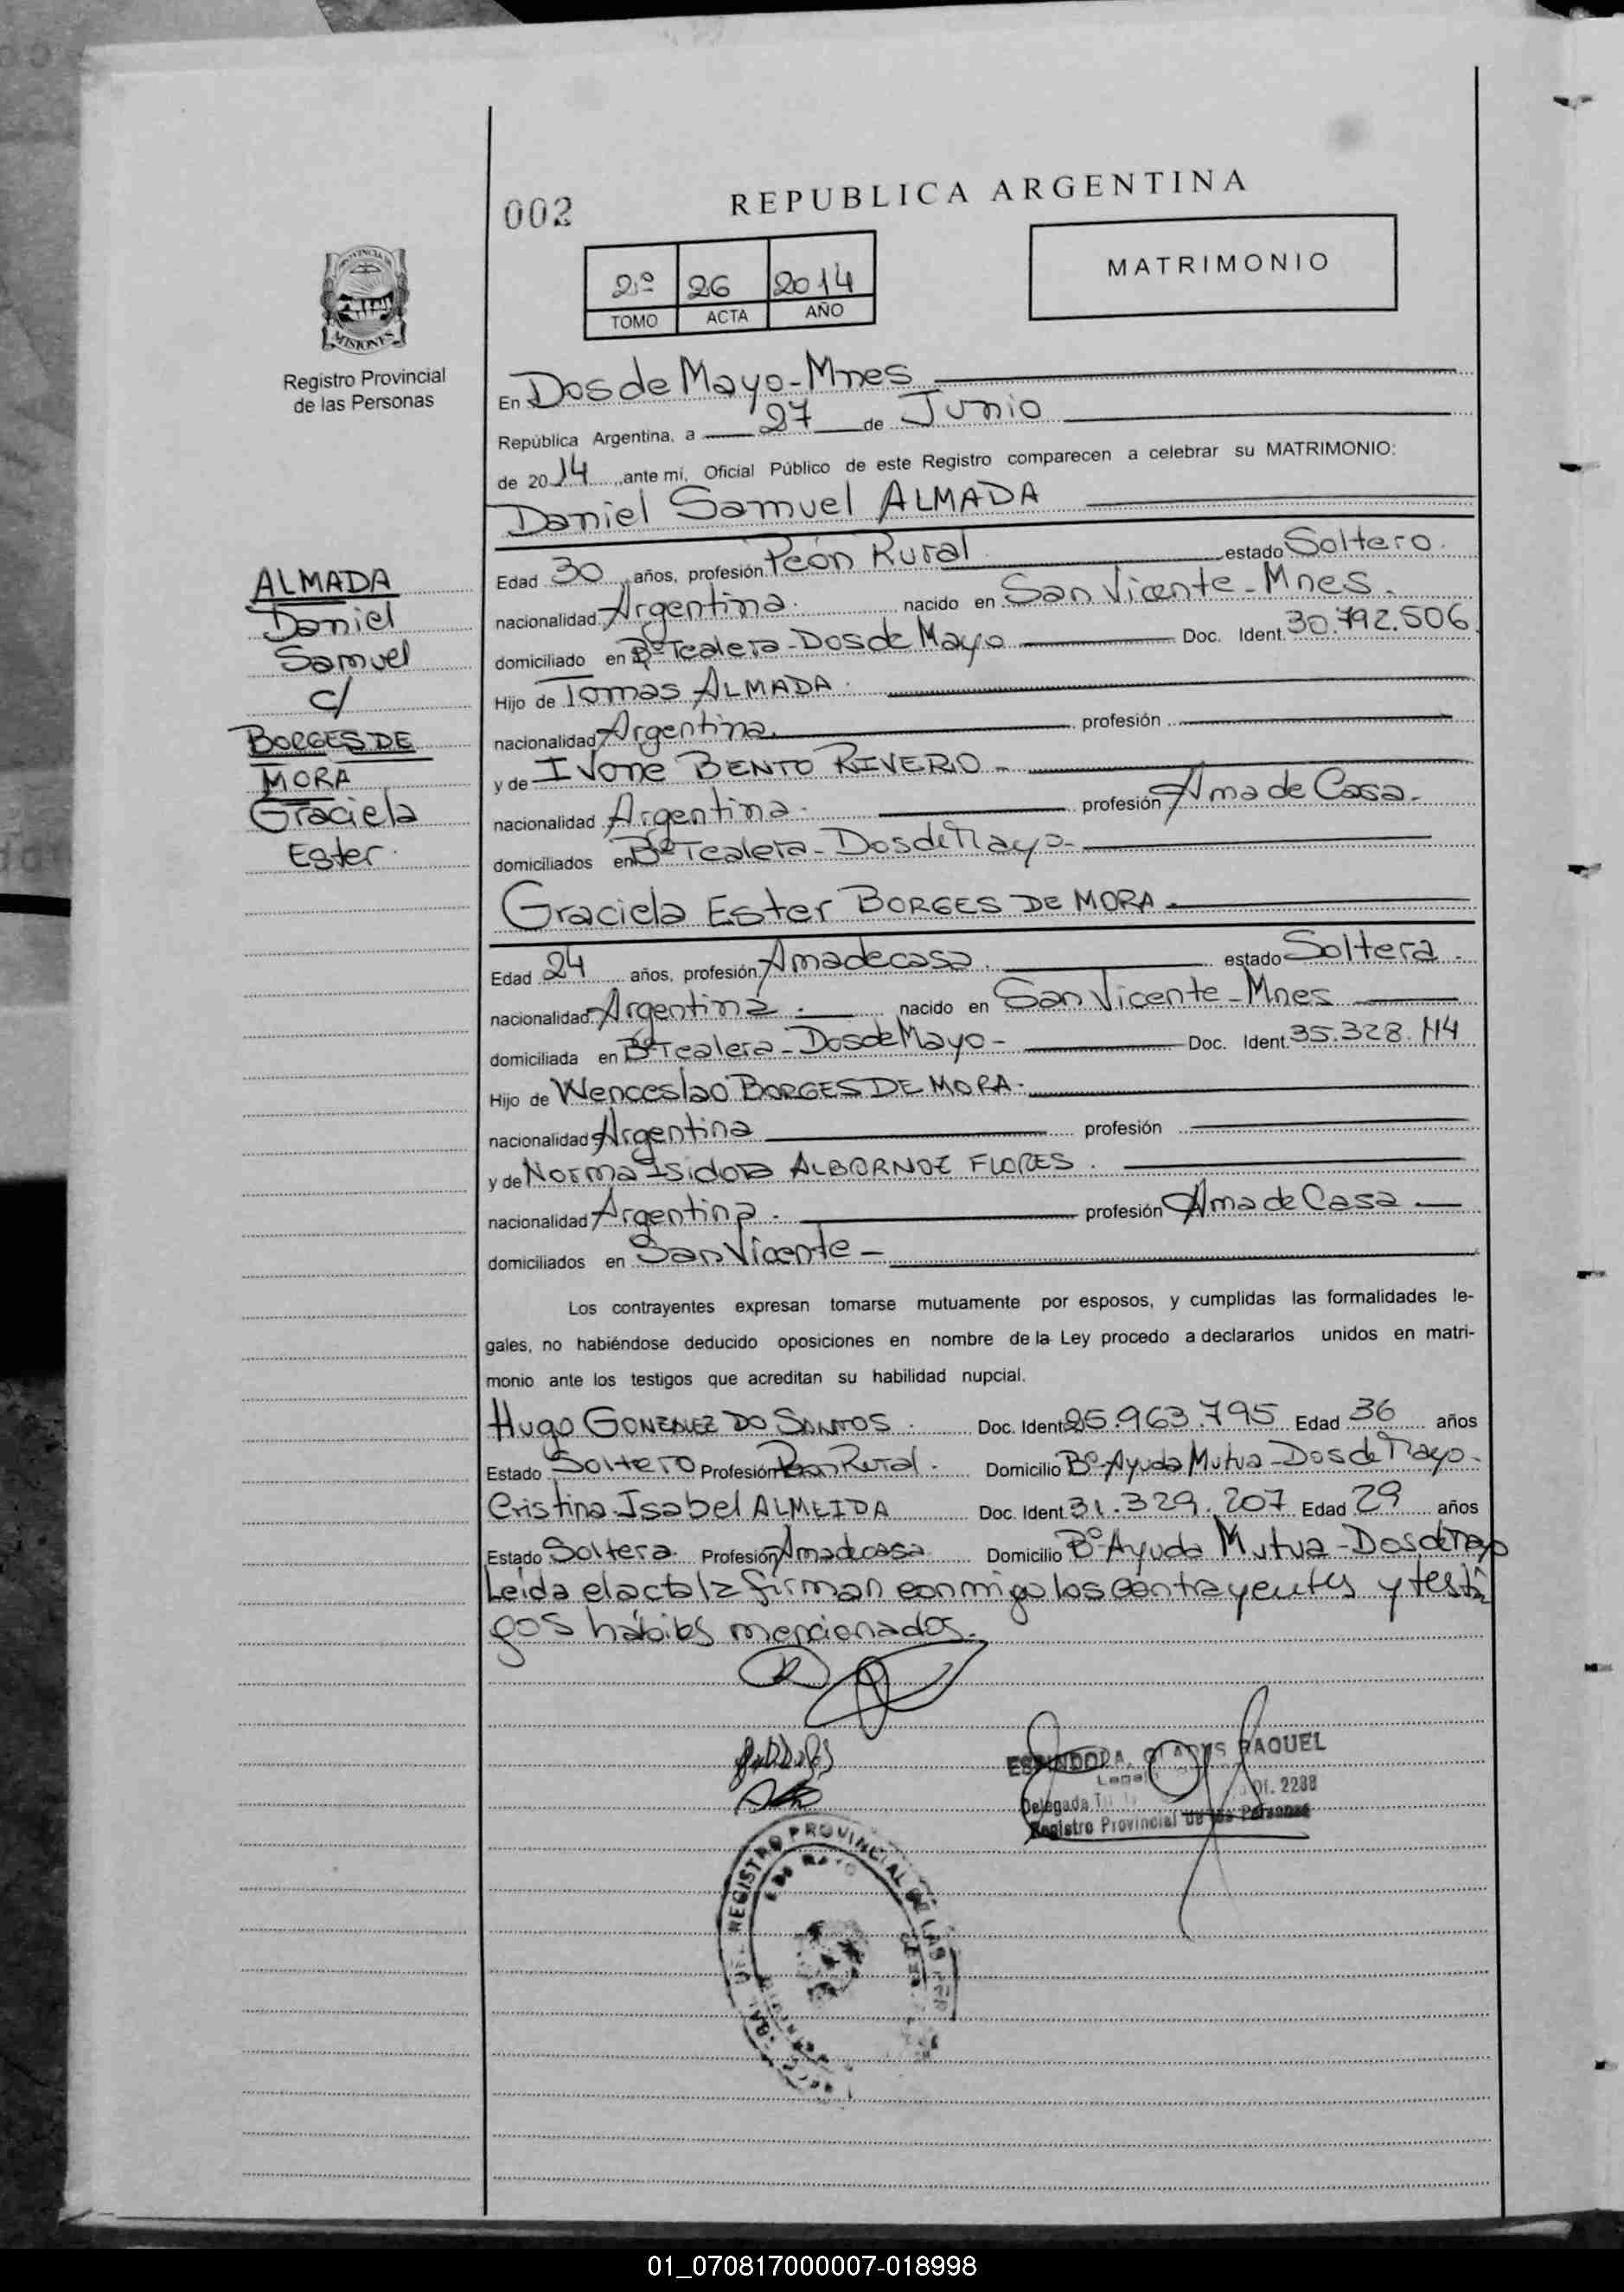 002
REPUBLICA ARGENTINA
2º 26 2014
TOMO ACTA AÑO
MATRIMONIO
PROVINCIA DE
MISIONES
Registro Provincial
de las Personas
En Dos de Mayo - Mnes
República Argentina, a 27 de Junio
de 2014 ante mí, Oficial Público de este Registro comparecen a celebrar su MATRIMONIO:
Daniel Samuel ALMADA
ALMADA
Daniel
Samuel
c/
BORGES DE
MORA
Graciela
Ester
Edad 30 años, profesión Peón Rural estado Soltero.
nacionalidad Argentina. nacido en San Vicente - Mnes.
domiciliado en Bº Tealera - Dos de Mayo Doc. Ident. 30.792.506
Hijo de Tomas ALMADA.
nacionalidad Argentina. profesión
y de Ivone BENTO RIVERO -
nacionalidad Argentina. profesión Ama de Casa.
domiciliados en Bº Tealera - Dos de Mayo -
Graciela Ester BORGES DE MORA.
Edad 24 años, profesión Ama de casa. estado Soltera.
nacionalidad Argentina. nacido en San Vicente - Mnes
domiciliada en Bº Tealera - Dos de Mayo - Doc. Ident. 35.328.114
Hijo de Wenceslao BORGES DE MORA.
nacionalidad Argentina profesión
y de Norma Isidora ALBORNOZ FLORES.
nacionalidad Argentina. profesión Ama de Casa
domiciliados en San Vicente -
Los contrayentes expresan tomarse mutuamente por esposos, y cumplidas las formalidades le-
gales, no habiéndose deducido oposiciones en nombre de la Ley procedo a declararlos unidos en matri-
monio ante los testigos que acreditan su habilidad nupcial.
Hugo GONZALEZ DO SANTOS. Doc. Ident. 25.963.795 Edad 36 años
Estado Soltero Profesión Peon Rural. Domicilio Bº Ayuda Mutua - Dos de Mayo -
Cristina Isabel ALMEIDA Doc. Ident. 31.329.207 Edad 29 años
Estado Soltera. Profesión Ama de casa Domicilio Bº Ayuda Mutua - Dos de Mayo
Leida el acta la firman conmigo los contrayentes y testi
gos hábiles mencionados.
ESPINDOLA, GLADYS RAQUEL
2288
Delegada
Registro Provincial de las Personas
REGISTRO PROVINCIAL DE LAS
01_070817000007-018998